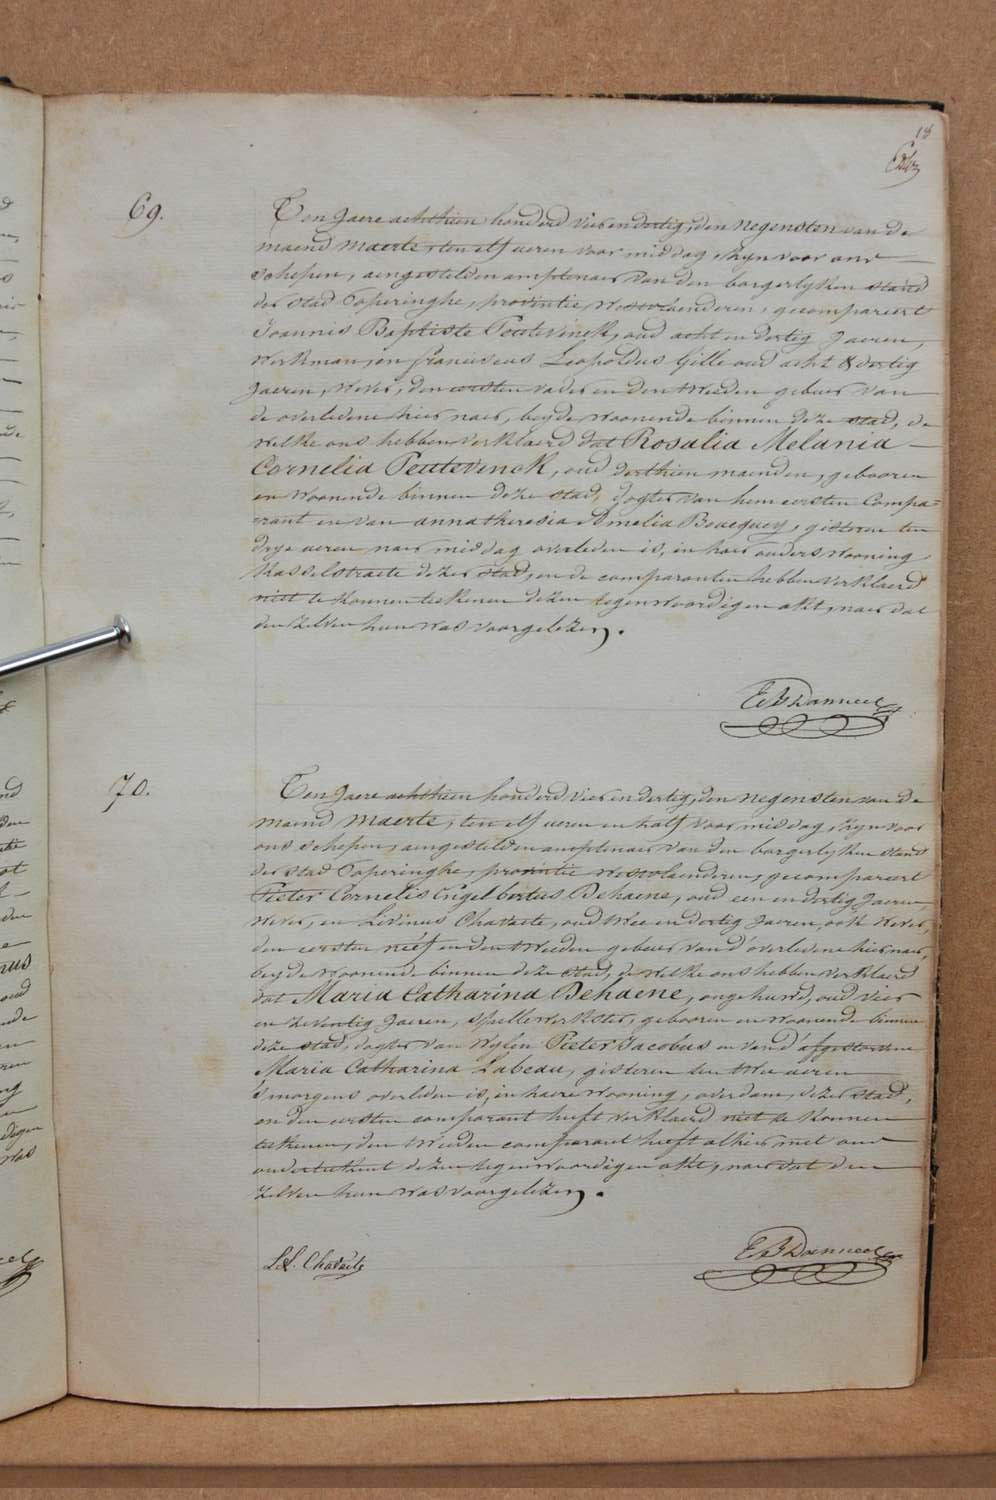 18
69.
Ten Jaere achthien honderd vier en dertig, den negensten van de
maend Maerte, ten elf ueren voor middag, Zyn voor ons
schepen, aengestelden amptenaer van den borgerlyken stand
der stad Poperinghe, provintie Westvlaenderen, gecompareert
Joannis Baptiste Peutevinck, oud acht en dertig Jaeren,
Werkman, en franciscus Leopoldus Gille oud acht & dertig
Jaeren, Wever, den eersten vader en den tweeden gebuer van
de overledene hier naer, beyde woonende binnen deze stad, de
welke ons hebben verklaerd dat Rosalia Melania
Cornelia Peutevinck, oud derthien maenden, gebooren
en woonende binnen deze stad, dogter van hem eersten Compa=
rant en van anna theresia Amelia Beacquey, gisteren ten
drye ueren naer middag overleden is, in haer ouders wooning
Kasselstraete dezer stad, en de comparanten hebben verklaerd
niet te konnen teekenen dezen tegenwoordigen akt, naer dat
den zelven hun was voorgelezen.
70.
Ten Jaere achthien honderd vier en dertig, den negensten van de
maend Maerte, ten elf ueren en half voor middag, Zyn voor
ons schepen, aengestelden amptenaer van den borgerlyken stand
der stad Poperinghe, provintie Westvlaenderen, gecompareert
Pieter Cornelis Engelbertus Dehaene, oud een en dertig Jaeren,
Wever, en Livinus Chavaete, oud twee en dertig Jaeren, ook Wever,
den eersten neef en den tweeden gebuer van d'overledene hier naer,
beyde woonende binnen deze stad, de welke ons hebben verklaerd
dat Maria Catharina Dehaene, ongehuwd, oud vier
en zeventig Jaeren, spellewerkster, gebooren en woonende binnen
deze stad, dogter van wylen Pieter Jacobus en van d'afgestorvene
Maria Catharina Labeau, gisteren ten twee ueren
's morgens overleden is, in haere wooning, overdam, dezer stad,
en den eersten comparant heeft verklaerd niet te konnen
teekenen, den tweeden comparant heeft alhier met ons
onderteekent dezen tegenwoordigen akt, naer dat den
zelven hun was voorgelezen.